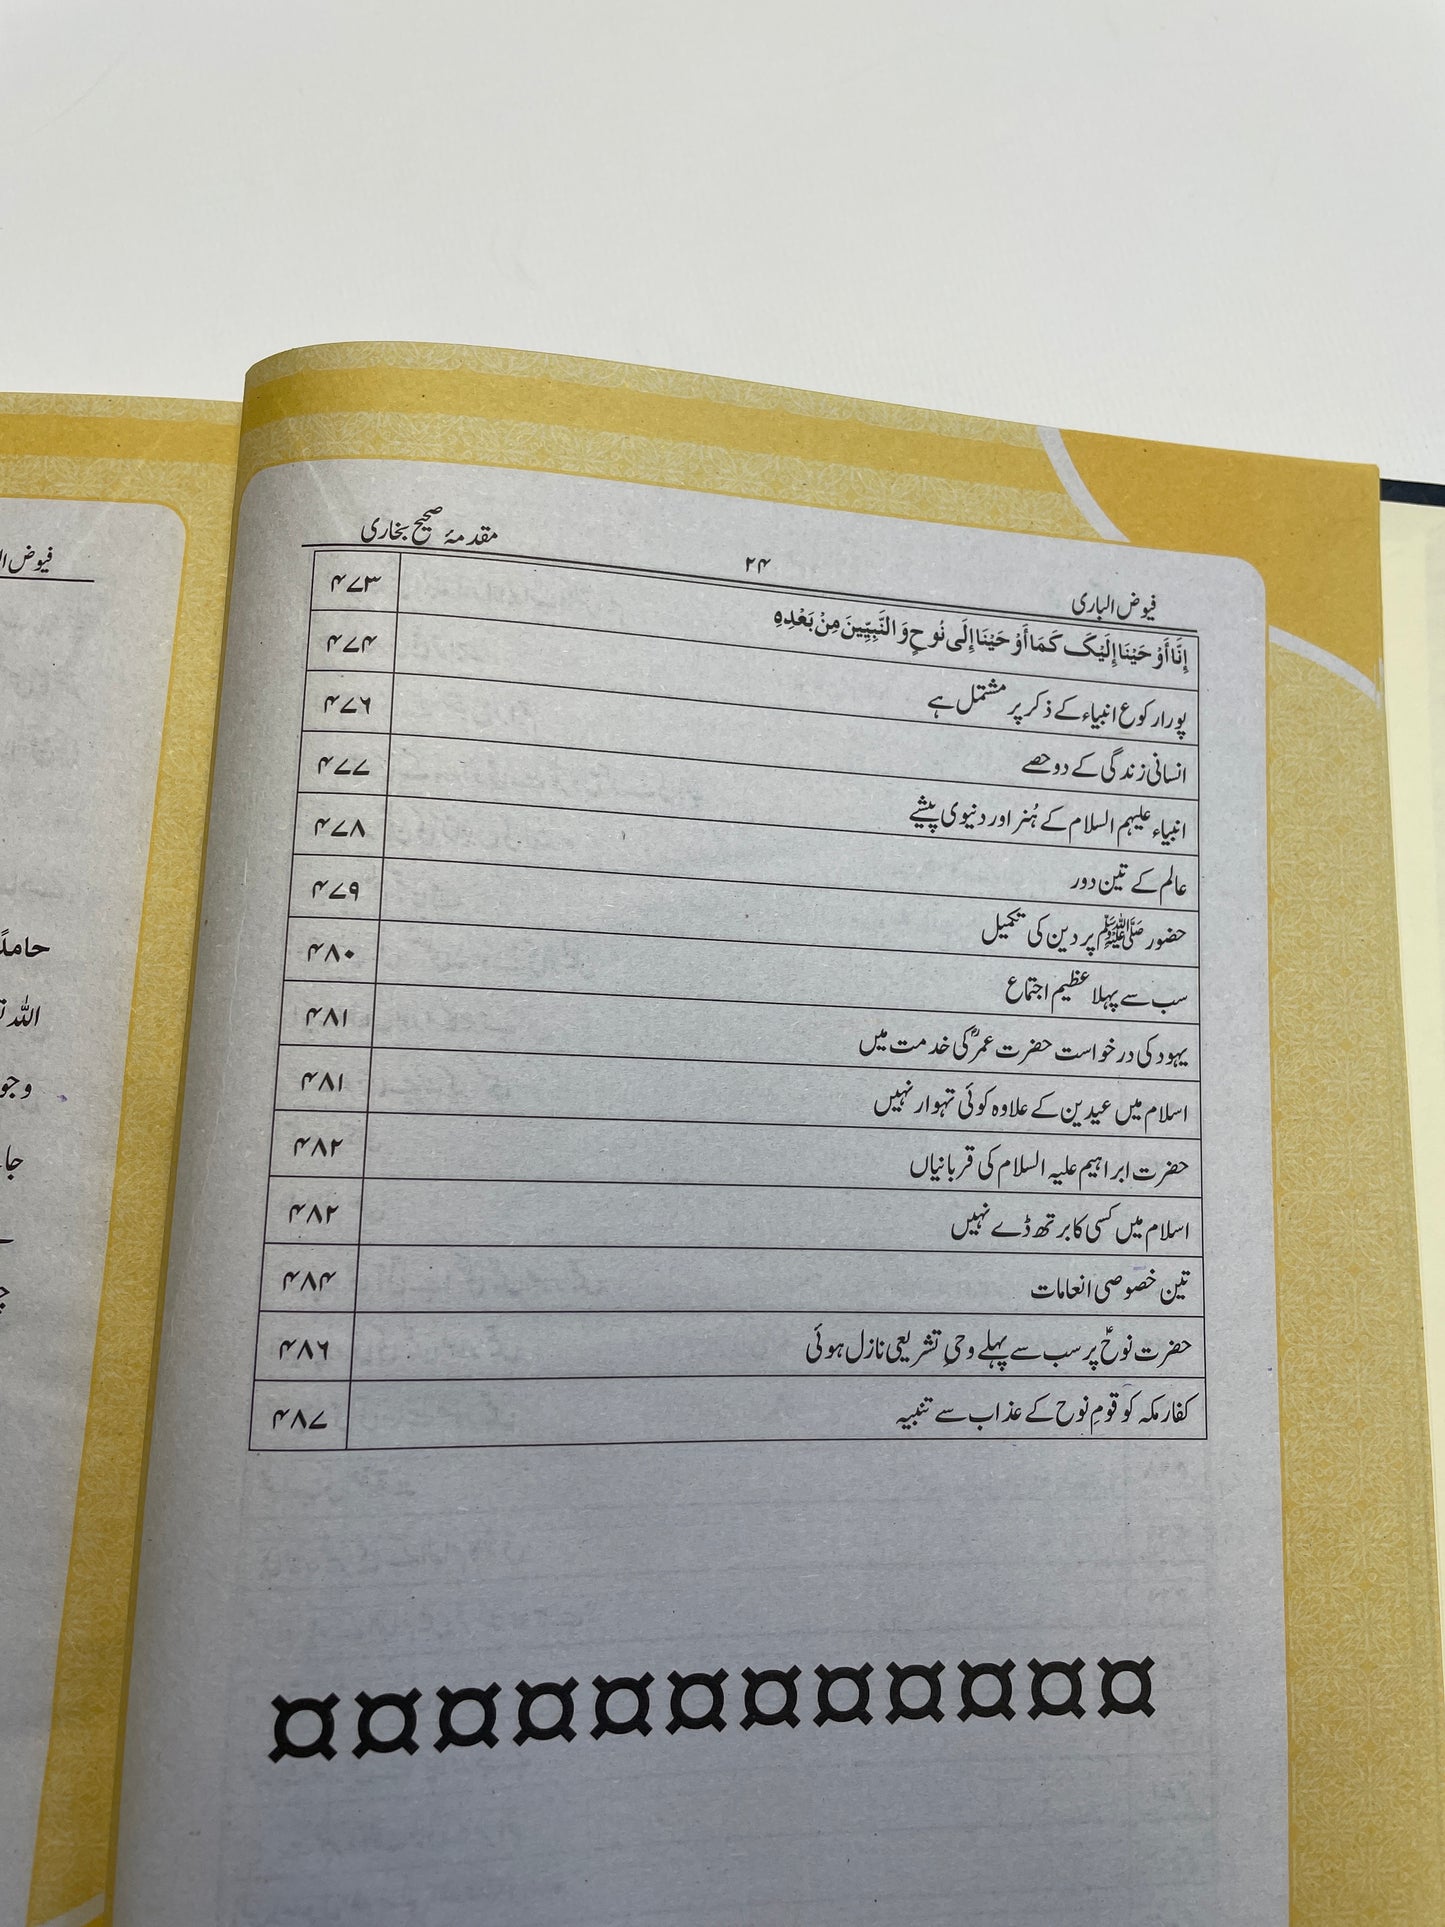 فیوض الباری ۲۴ مقدمۂ صحیح بخاری
إِنَّا أَوْحَيْنَا إِلَيْكَ كَمَا أَوْحَيْنَا إِلَى نُوحٍ وَالنَّبِيِّينَ مِنْ بَعْدِهِ ۴۷۳
پورا رکوع انبیاء کے ذکر پر مشتمل ہے ۴۷۴
انسانی زندگی کے دو حصے ۴۷۶
انبیاء علیہم السلام کے ہُنر اور دنیوی پیشے ۴۷۷
عالم کے تین دور ۴۷۸
حضور ﷺ پر دین کی تکمیل ۴۷۹
سب سے پہلا عظیم اجتماع ۴۸۰
یہود کی درخواست حضرت عمرؓ کی خدمت میں ۴۸۱
اسلام میں عیدین کے علاوہ کوئی تہوار نہیں ۴۸۱
حضرت ابراہیم علیہ السلام کی قربانیاں ۴۸۲
اسلام میں کسی کا برتھ ڈے نہیں ۴۸۲
تین خصوصی انعامات ۴۸۴
حضرت نوحؑ پر سب سے پہلے وحیِ تشریعی نازل ہوئی ۴۸۶
کفار مکہ کو قومِ نوح کے عذاب سے تنبیہ ۴۸۷
فیوض ال
حامداً
اللہ
وجو